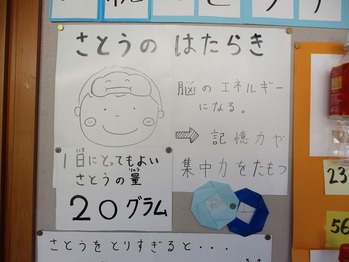 さとうの はたらき
脳のエネルギー
になる。
⇨ 記憶力や
集中力をたもつ
1日にとってもよい
さとうの量
20グラム
さとうをとりすぎると・・・
23
56